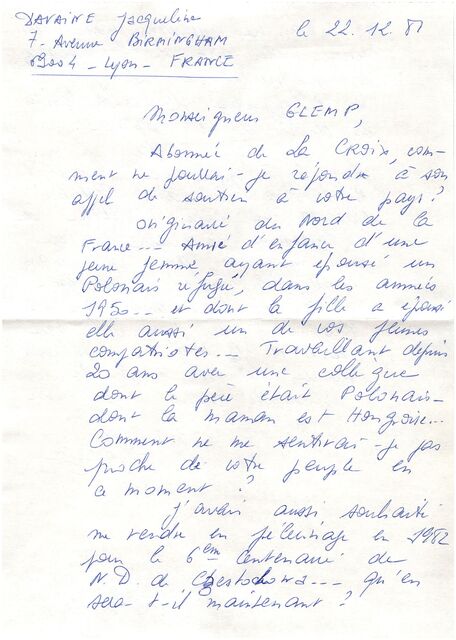 DAVAINE Jacqueline
7 - Avenue BIRMINGHAM
69004 - Lyon - FRANCE
le 22.12.81
Monseigneur GLEMP,
Abonnée de La CROIX, com-
ment ne pouvais-je répondre à son
appel de soutien à votre pays ?
Originaire du Nord de la
France... Amie d'enfance d'une
jeune femme ayant épousé un
Polonais réfugié, dans les années
1950... et dont la fille a épousé
elle aussi un de vos jeunes
compatriotes... Travaillant depuis
20 ans avec une collègue
dont le père était Polonais -
dont la maman est Hongroise...
Comment ne me sentirais-je pas
proche de votre peuple en
ce moment ?
J'avais aussi souhaité
me rendre en pélerinage en 1982
pour le 6em centenaire de
N.D. de Czestochowa... qu'en
sera-t-il maintenant ?